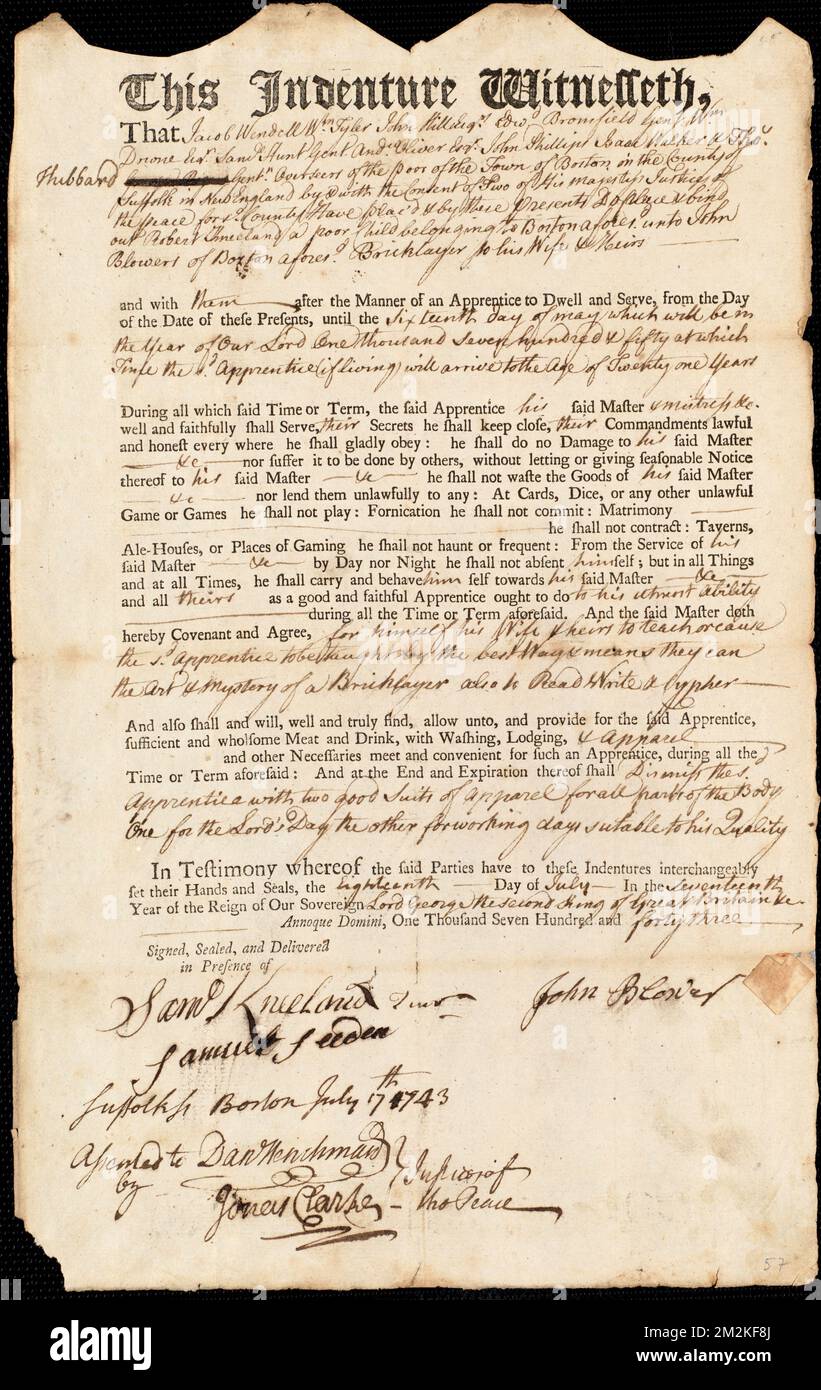 This Indenture Witnesseth,
That Jacob Wendell Wm Tyler John Hill Esqrs Edwd Bromfield Gent Wm
Drione Esqr Saml Hunt Gent Andw Oliver Esqr John Phillips Isaac Walker & Thos
Hubbard Gentn Overseers of the Poor of the Town of Boston in the County of
Suffolk in New England by & with the Consent of Two of His Majestys Justices of
the peace for sd County Have plac'd & by these presents Do place & bind
out Robert Kneeland a poor Child belonging to Boston aforesd unto John
Blowers of Boston aforesd Bricklayer to his Wife & Heirs
and with them after the Manner of an Apprentice to Dwell and Serve, from the Day
of the Date of these Presents, until the Sixteenth day of may which will be in
the Year of Our Lord One thousand Seven hundred & fifty at which
Time the sd Apprentice (if living) will arrive to the Age of Twenty one Years
During all which said Time or Term, the said Apprentice his said Master & mistress &c.
well and faithfully shall Serve, their Secrets he shall keep close, their Commandments lawful
and honest every where he shall gladly obey: he shall do no Damage to his said Master
&c nor suffer it to be done by others, without letting or giving seasonable Notice
thereof to his said Master &c he shall not waste the Goods of his said Master
&c nor lend them unlawfully to any: At Cards, Dice, or any other unlawful
Game or Games he shall not play: Fornication he shall not commit: Matrimony
he shall not contract: Taverns,
Ale-Houses, or Places of Gaming he shall not haunt or frequent: From the Service of his
said Master &c by Day nor Night he shall not absent himself; but in all Things
and at all Times, he shall carry and behave him self towards his said Master &c
and all theirs as a good and faithful Apprentice ought to do to his utmost ability
during all the Time or Term aforesaid. And the said Master doth
hereby Covenant and Agree, for himself his Wife & heirs to teach or cause
the sd Apprentice to be taught by the best Way & means they can
the Art & Mystery of a Bricklayer also to Read Write & Cypher
And also shall and will, well and truly find, allow unto, and provide for the said Apprentice,
sufficient and wholsome Meat and Drink, with Washing, Lodging, & apparel
and other Necessaries meet and convenient for such an Apprentice, during all the
Time or Term aforesaid: And at the End and Expiration thereof shall Dismiss the sd
Apprentice with two good Suits of apparel for all parts of the Body
One for the Lord's Day the other for working days suitable to his Quality
In Testimony whereof the said Parties have to these Indentures interchangeably
set their Hands and Seals, the Eighteenth Day of July In the Seventeenth
Year of the Reign of Our Sovereign Lord George the second King of Great Britain &c
Annoque Domini, One Thousand Seven Hundred and forty three
Signed, Sealed, and Delivered
in Presence of
Saml Kneeland Junr John Blowers
Samuel Seeden
Suffolk ss Boston July 17th 1743
Assented to Danl Henchman
by Jonas Clarke Justices of the Peace
57
alamy
Image ID: 2M2KF8J
www.alamy.com